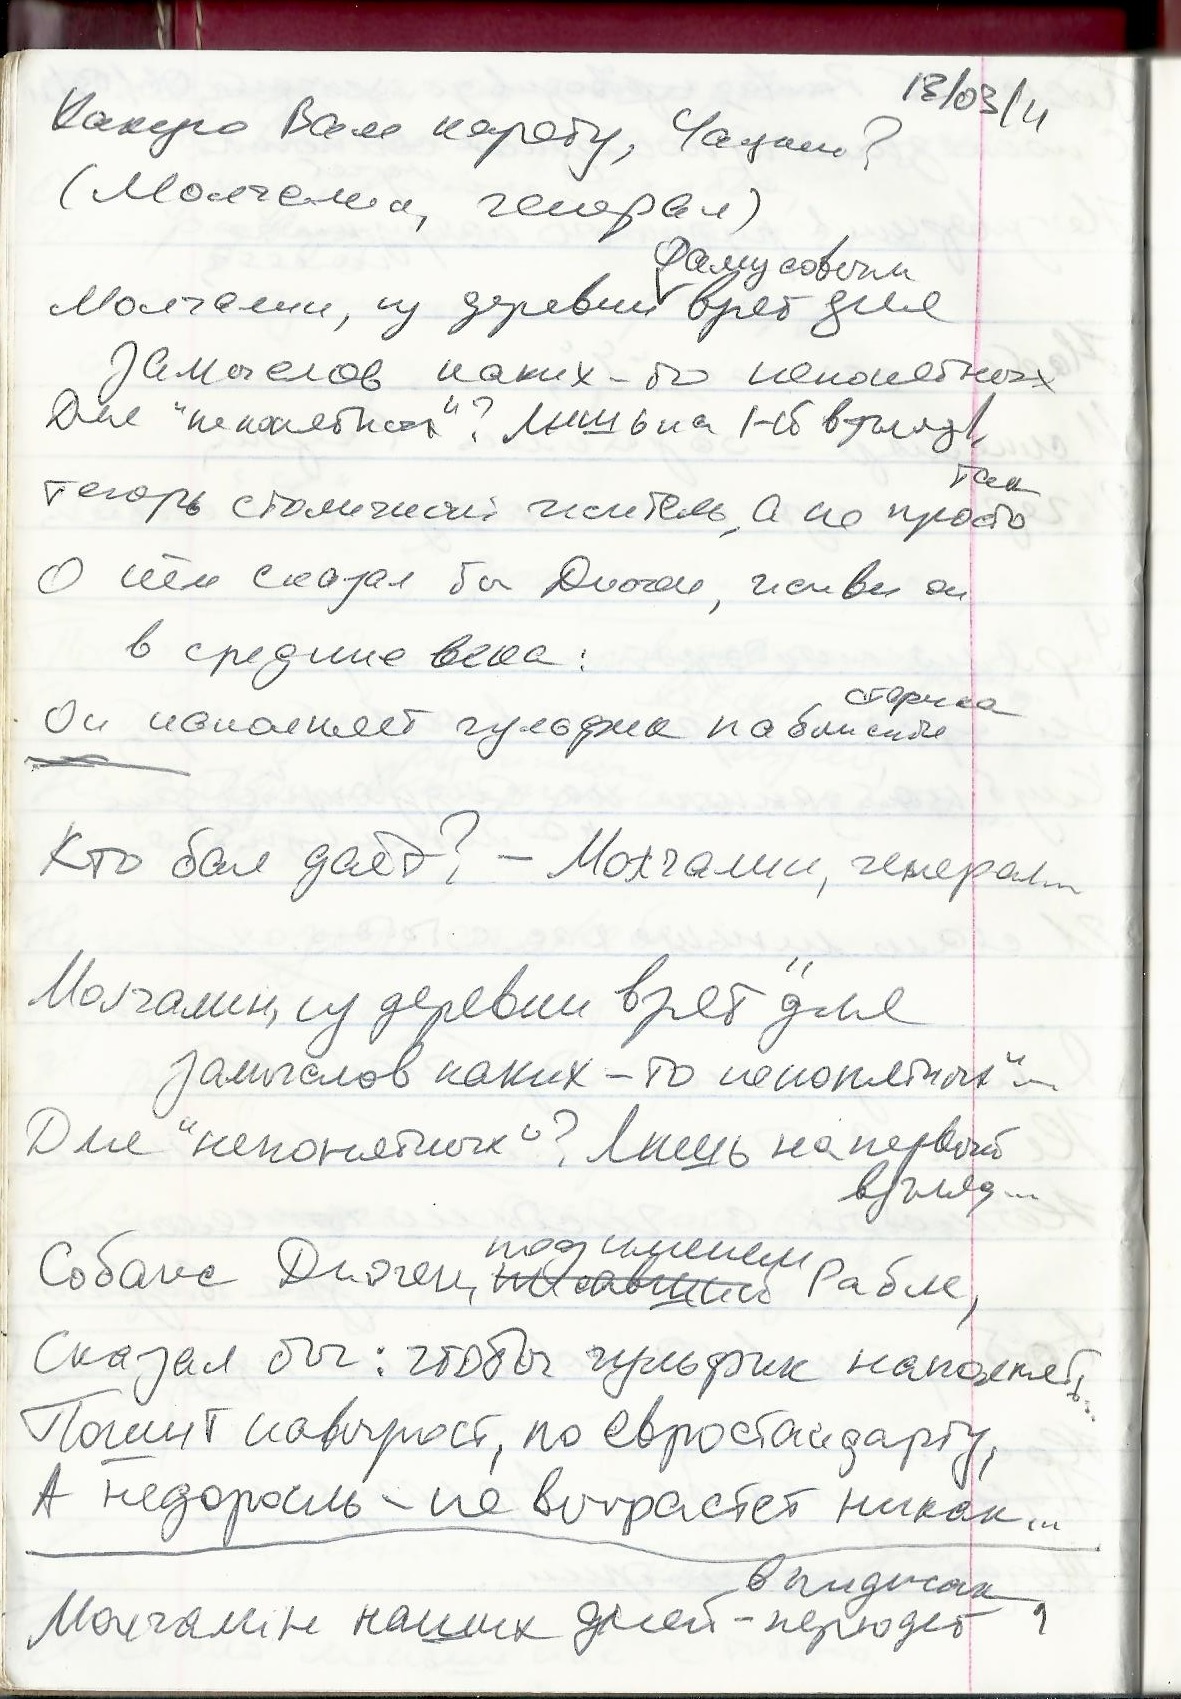 13/03/11
Какую Вам карету, Чацкий?
(Молчалин, генерал)
Фамусовым
Молчалин, из деревни врёт для
замыслов каких-то непонятных
Для "непонятных"? Лишь на 1-ый взгляд,
так
теперь столичный житель, а не просто
О нём сказал бы Диоген, живи он
в средние века:
Он наполняет гульфик
старика
Кто бал даёт? – Молчалин, генерал...
Молчалин, из деревни врёт "для
замыслов каких-то непонятных"...
Для "непонятных"? Лишь на первый
взгляд...
под именем
Собака Диоген, Рабле,
Сказал бы: чтобы гульфик наполнять..
Пошит навырост, по евростандарту,
А недоросль – не возрастет никак...
в пиджак
Молчалин наших дней –